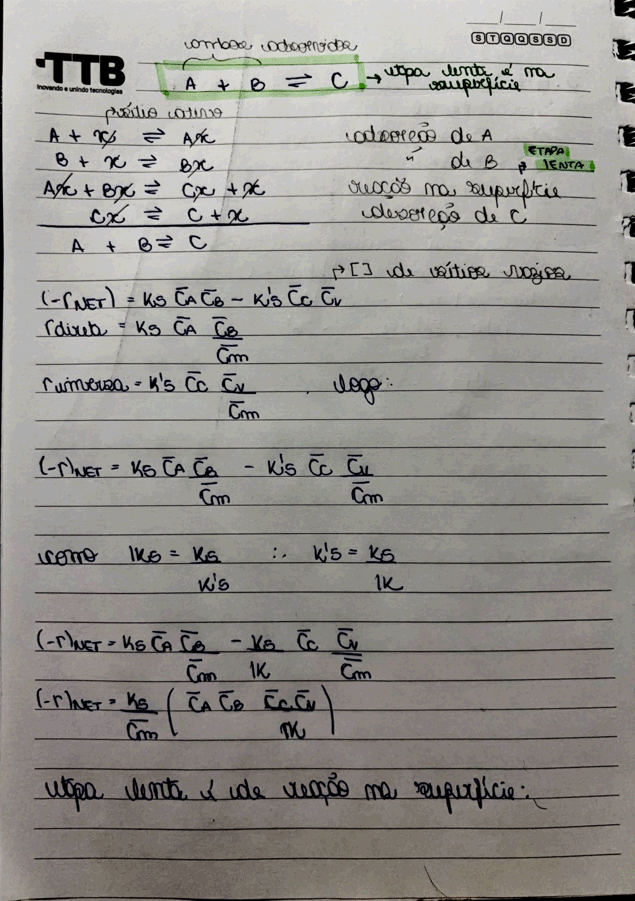 __/__/__
S T Q Q S S D
TTB
Inovando e unindo tecnologias
ambos adsorvidos
A + B ⇌ C → etapa lenta é na superfície
sítio ativo
A + x ⇌ Ax adsorção de A
B + x ⇌ Bx " de B ETAPA LENTA
Ax + Bx ⇌ Cx + x reação na superfície
Cx ⇌ C + x desorção de C
A + B ⇌ C
↱ [ ] de sítios vazios
(-rNET) = Ks C̄A C̄B - K's C̄C C̄v
rdireta = Ks C̄A C̄B / C̄m
rinversa = K's C̄C C̄v / C̄m . logo:
(-r)NET = Ks C̄A C̄B / C̄m - K's C̄C C̄v / C̄m
como IKs = Ks / K's ∴ K's = Ks / IK
(-r)NET = Ks C̄A C̄B / C̄m - Ks / IK C̄C C̄v / C̄m
(-r)NET = Ks / C̄m ( C̄A C̄B C̄C C̄v / IK )
etapa lenta é de reação na superfície: